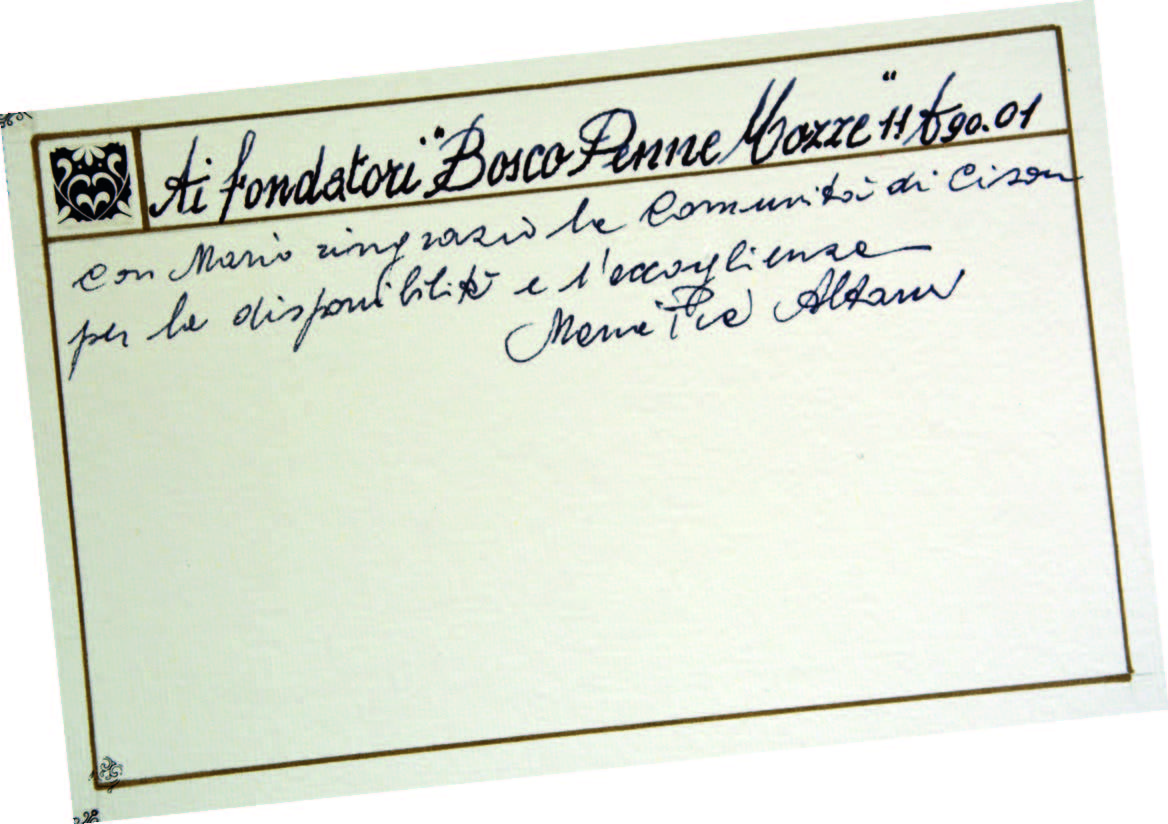 Ai fondatori "Bosco Penne Mozze" 11 Ago. 01
con Mario ringrazio la Comunità di Cison
per la disponibilità e l'accoglienza
Maria Pia Altarui